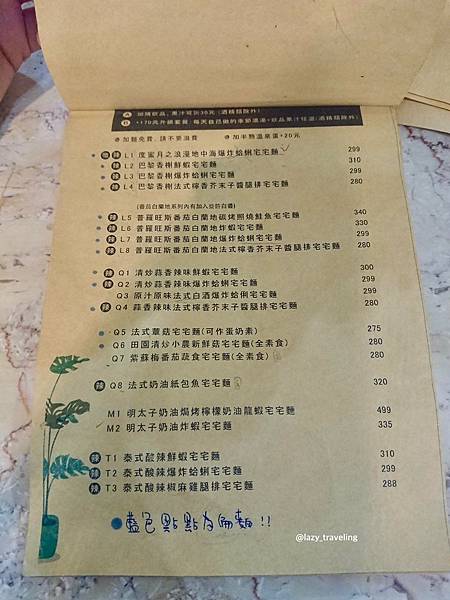 A 加購飲品, 果汁現折30元 (酒精類除外)
B +170元升級套餐: 每天自己做的季節濃湯+飲品果汁任選(酒精類除外)
加麵免費, 請不要浪費 加半熟溫泉蛋+20元
辣 L1 度蜜月之浪漫地中海爆炸蛤蜊宅宅麵 299
辣 L2 巴黎香榭鮮蝦宅宅麵 310
辣 L3 巴黎香榭爆炸蛤蜊宅宅麵 299
辣 L4 巴黎香榭法式檸香芥末子醬腿排宅宅麵 280
(番茄白蘭地系列內有加入些許白醬)
辣 L5 普羅旺斯番茄白蘭地碳烤照燒鮭魚宅宅麵 340
辣 L6 普羅旺斯番茄白蘭地炸蝦宅宅麵 330
辣 L7 普羅旺斯番茄白蘭地爆炸蛤蜊宅宅麵 299
辣 L8 普羅旺斯番茄白蘭地法式檸香芥末子醬腿排宅宅麵 280
Q1 清炒蒜香辣味鮮蝦宅宅麵 300
辣 Q2 清炒蒜香辣味爆炸蛤蜊宅宅麵 299
Q3 原汁原味法式白酒爆炸蛤俐宅宅麵 299
辣 Q4 蒜香辣味法式檸香芥末子醬腿排宅宅麵 280
Q5 法式蕈菇宅宅麵(可作蛋奶素) 275
Q6 田園清炒小農新鮮菇宅宅麵(全素食) 280
Q7 紫蘇梅番茄蔬食宅宅麵(全素食) 280
辣 Q8 法式奶油紙包魚宅宅麵 320
M1 明太子奶油焗烤檸檬奶油龍蝦宅宅麵 499
M2 明太子奶油炸蝦宅宅麵 335
辣 T1 泰式酸辣鮮蝦宅宅麵 310
辣 T2 泰式酸辣爆炸蛤蜊宅宅麵 299
辣 T3 泰式酸辣椒麻雞腿排宅宅麵 288
藍色點點為扁麵!!
@lazy_traveling